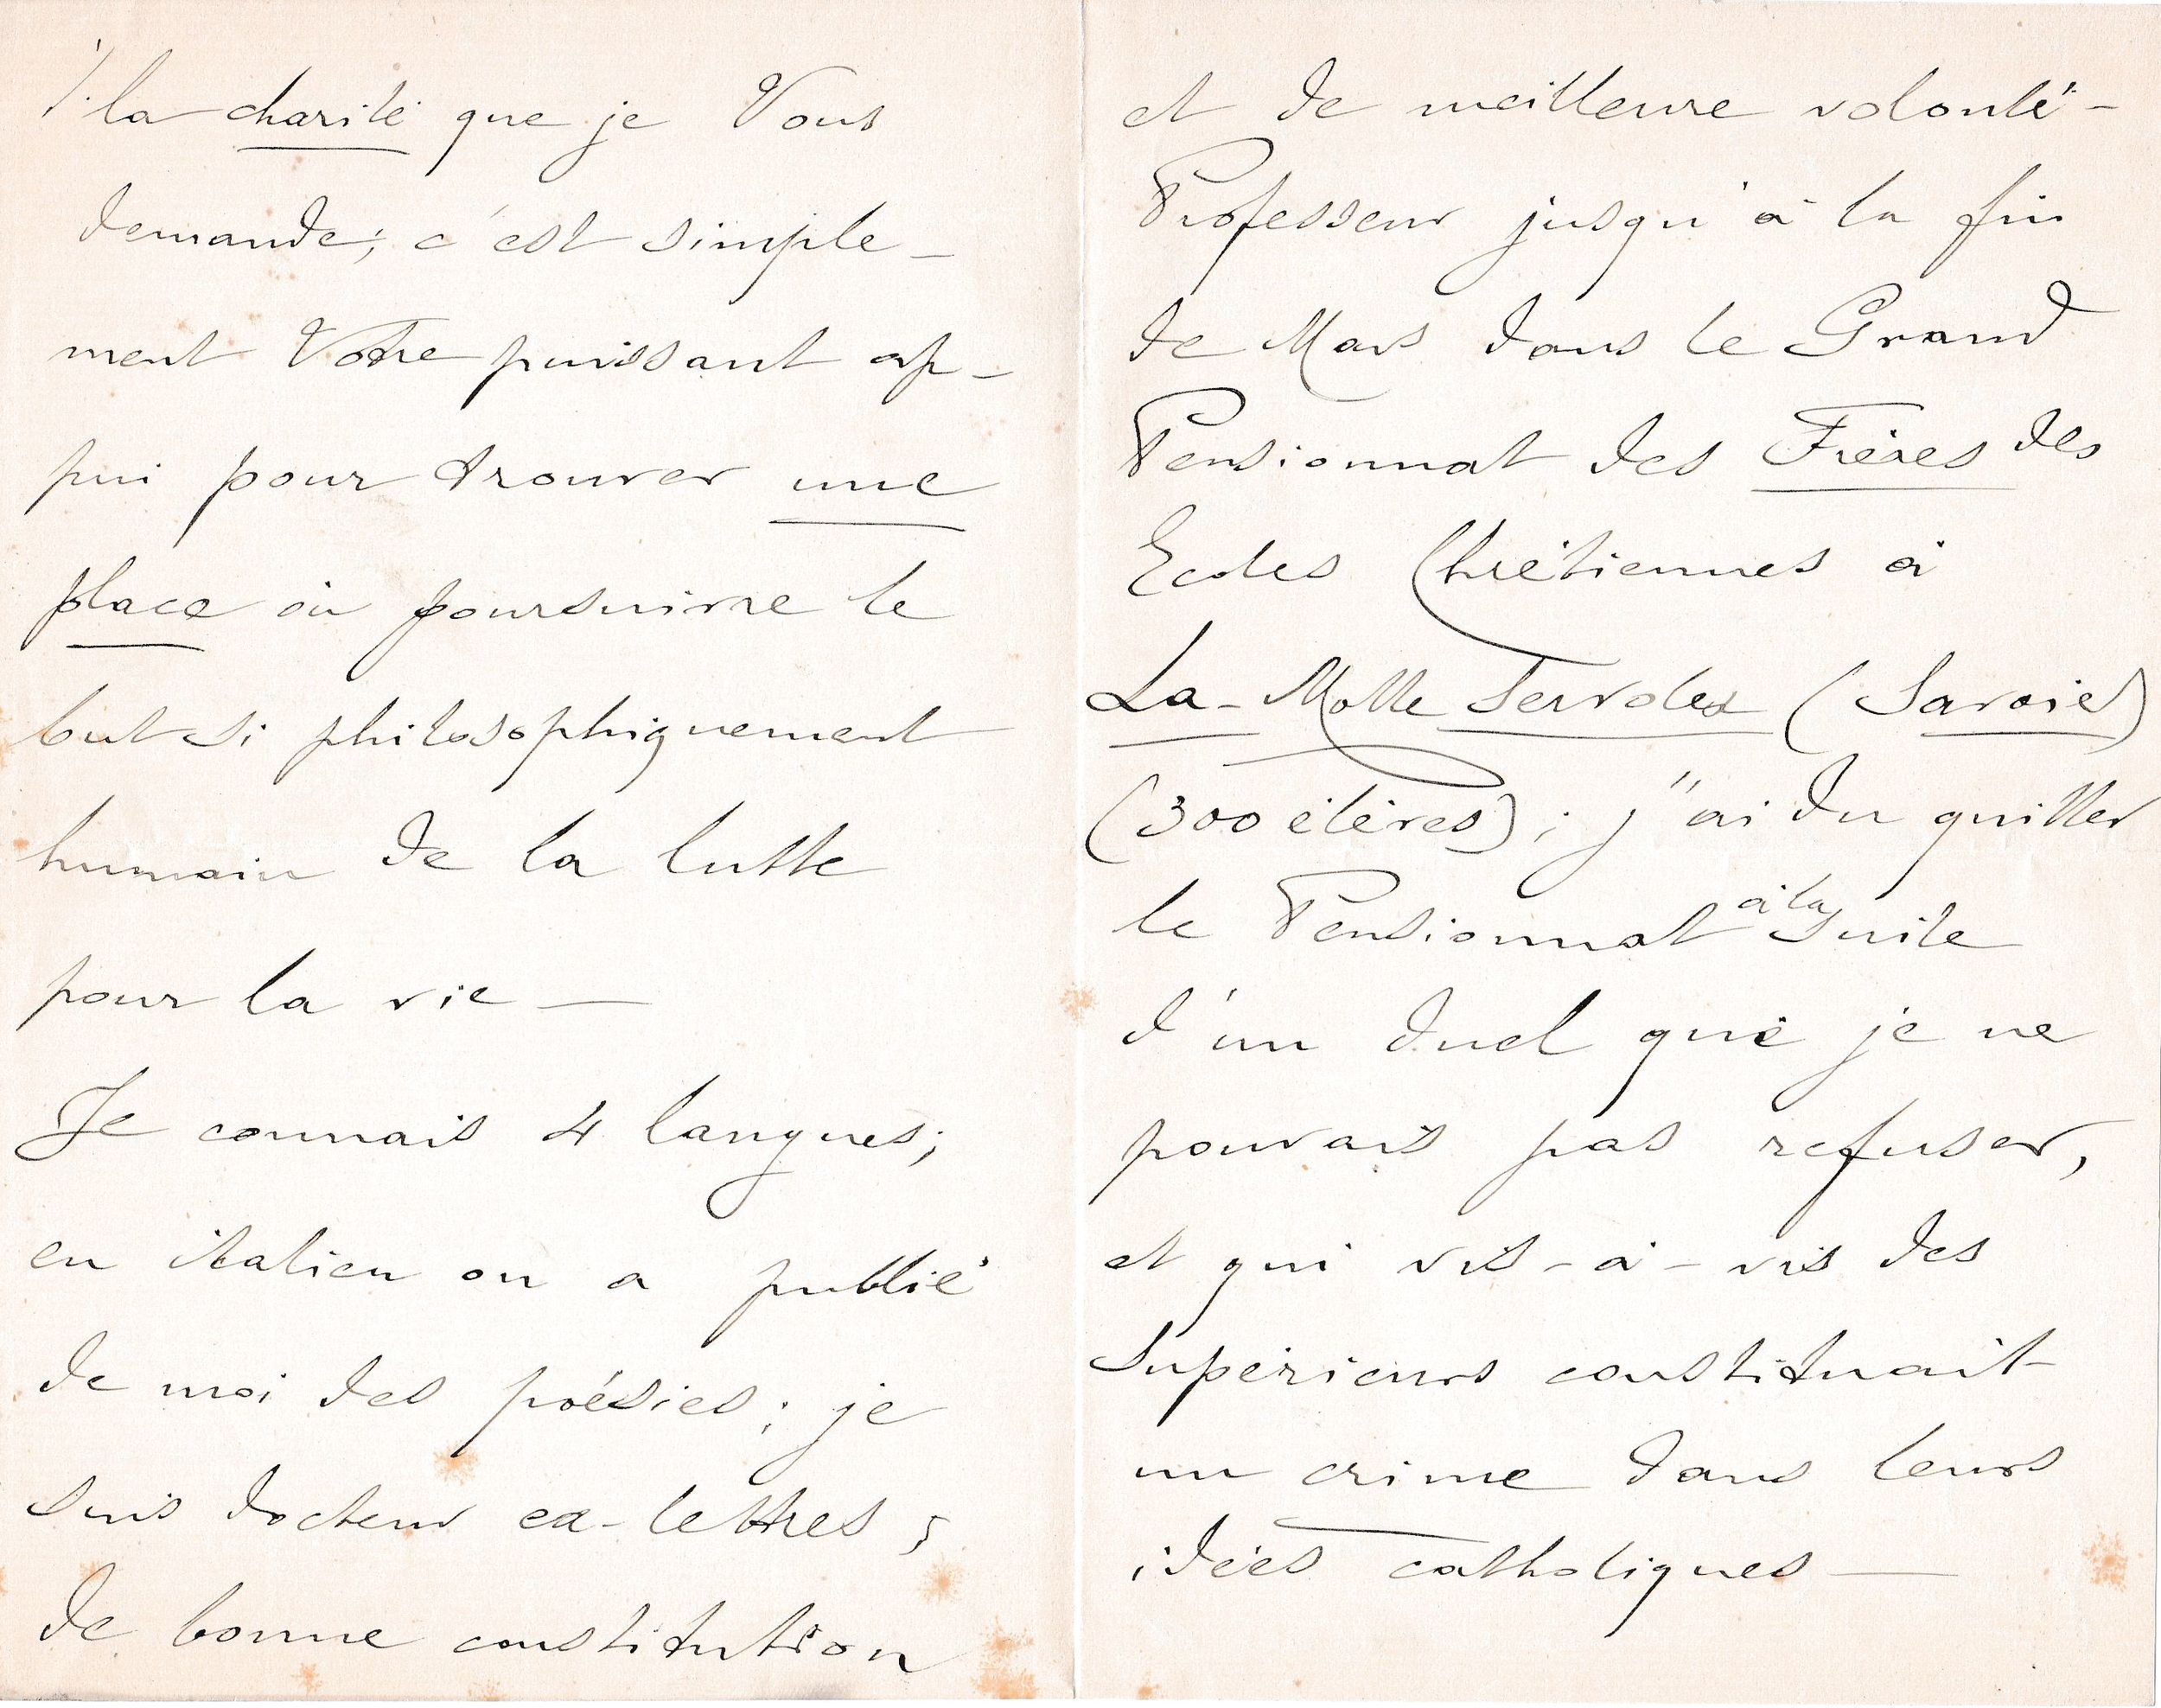 la charité que je Vous
demande; c'est simple-
ment Votre puissant ap-
pui pour trouver une
place où poursuivre le
but si philosophiquement
humain de la lutte
pour la vie —
Je connais 4 langues;
en italien on a publié
de moi des poésies; je
suis docteur ex-lettres;
de bonne constitution
et de meilleure volonté -
Professeur jusqu'à la fin
de Mars dans le Grand
Pensionnat des Frères des
Ecoles Chrétiennes à
La-Motte Servolex (Savoie)
(300 élèves); j'ai du quitter
le Pensionnat à la suite
d'un duel que je ne
pouvais pas refuser,
et qui vis-à-vis des
Supérieurs constituait
un crime dans leurs
idées catholiques —